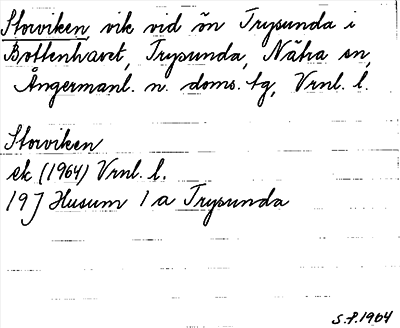 Storviken, vik vid ön Trysunda i
Bottenhavet, Trysunda, Nätra sn,
Ångermanl. n. doms. tg, Vrnl. l.
Storviken
ek (1964) Vrnl. l.
19 J Husum 1 a Trysunda
S.F. 1964